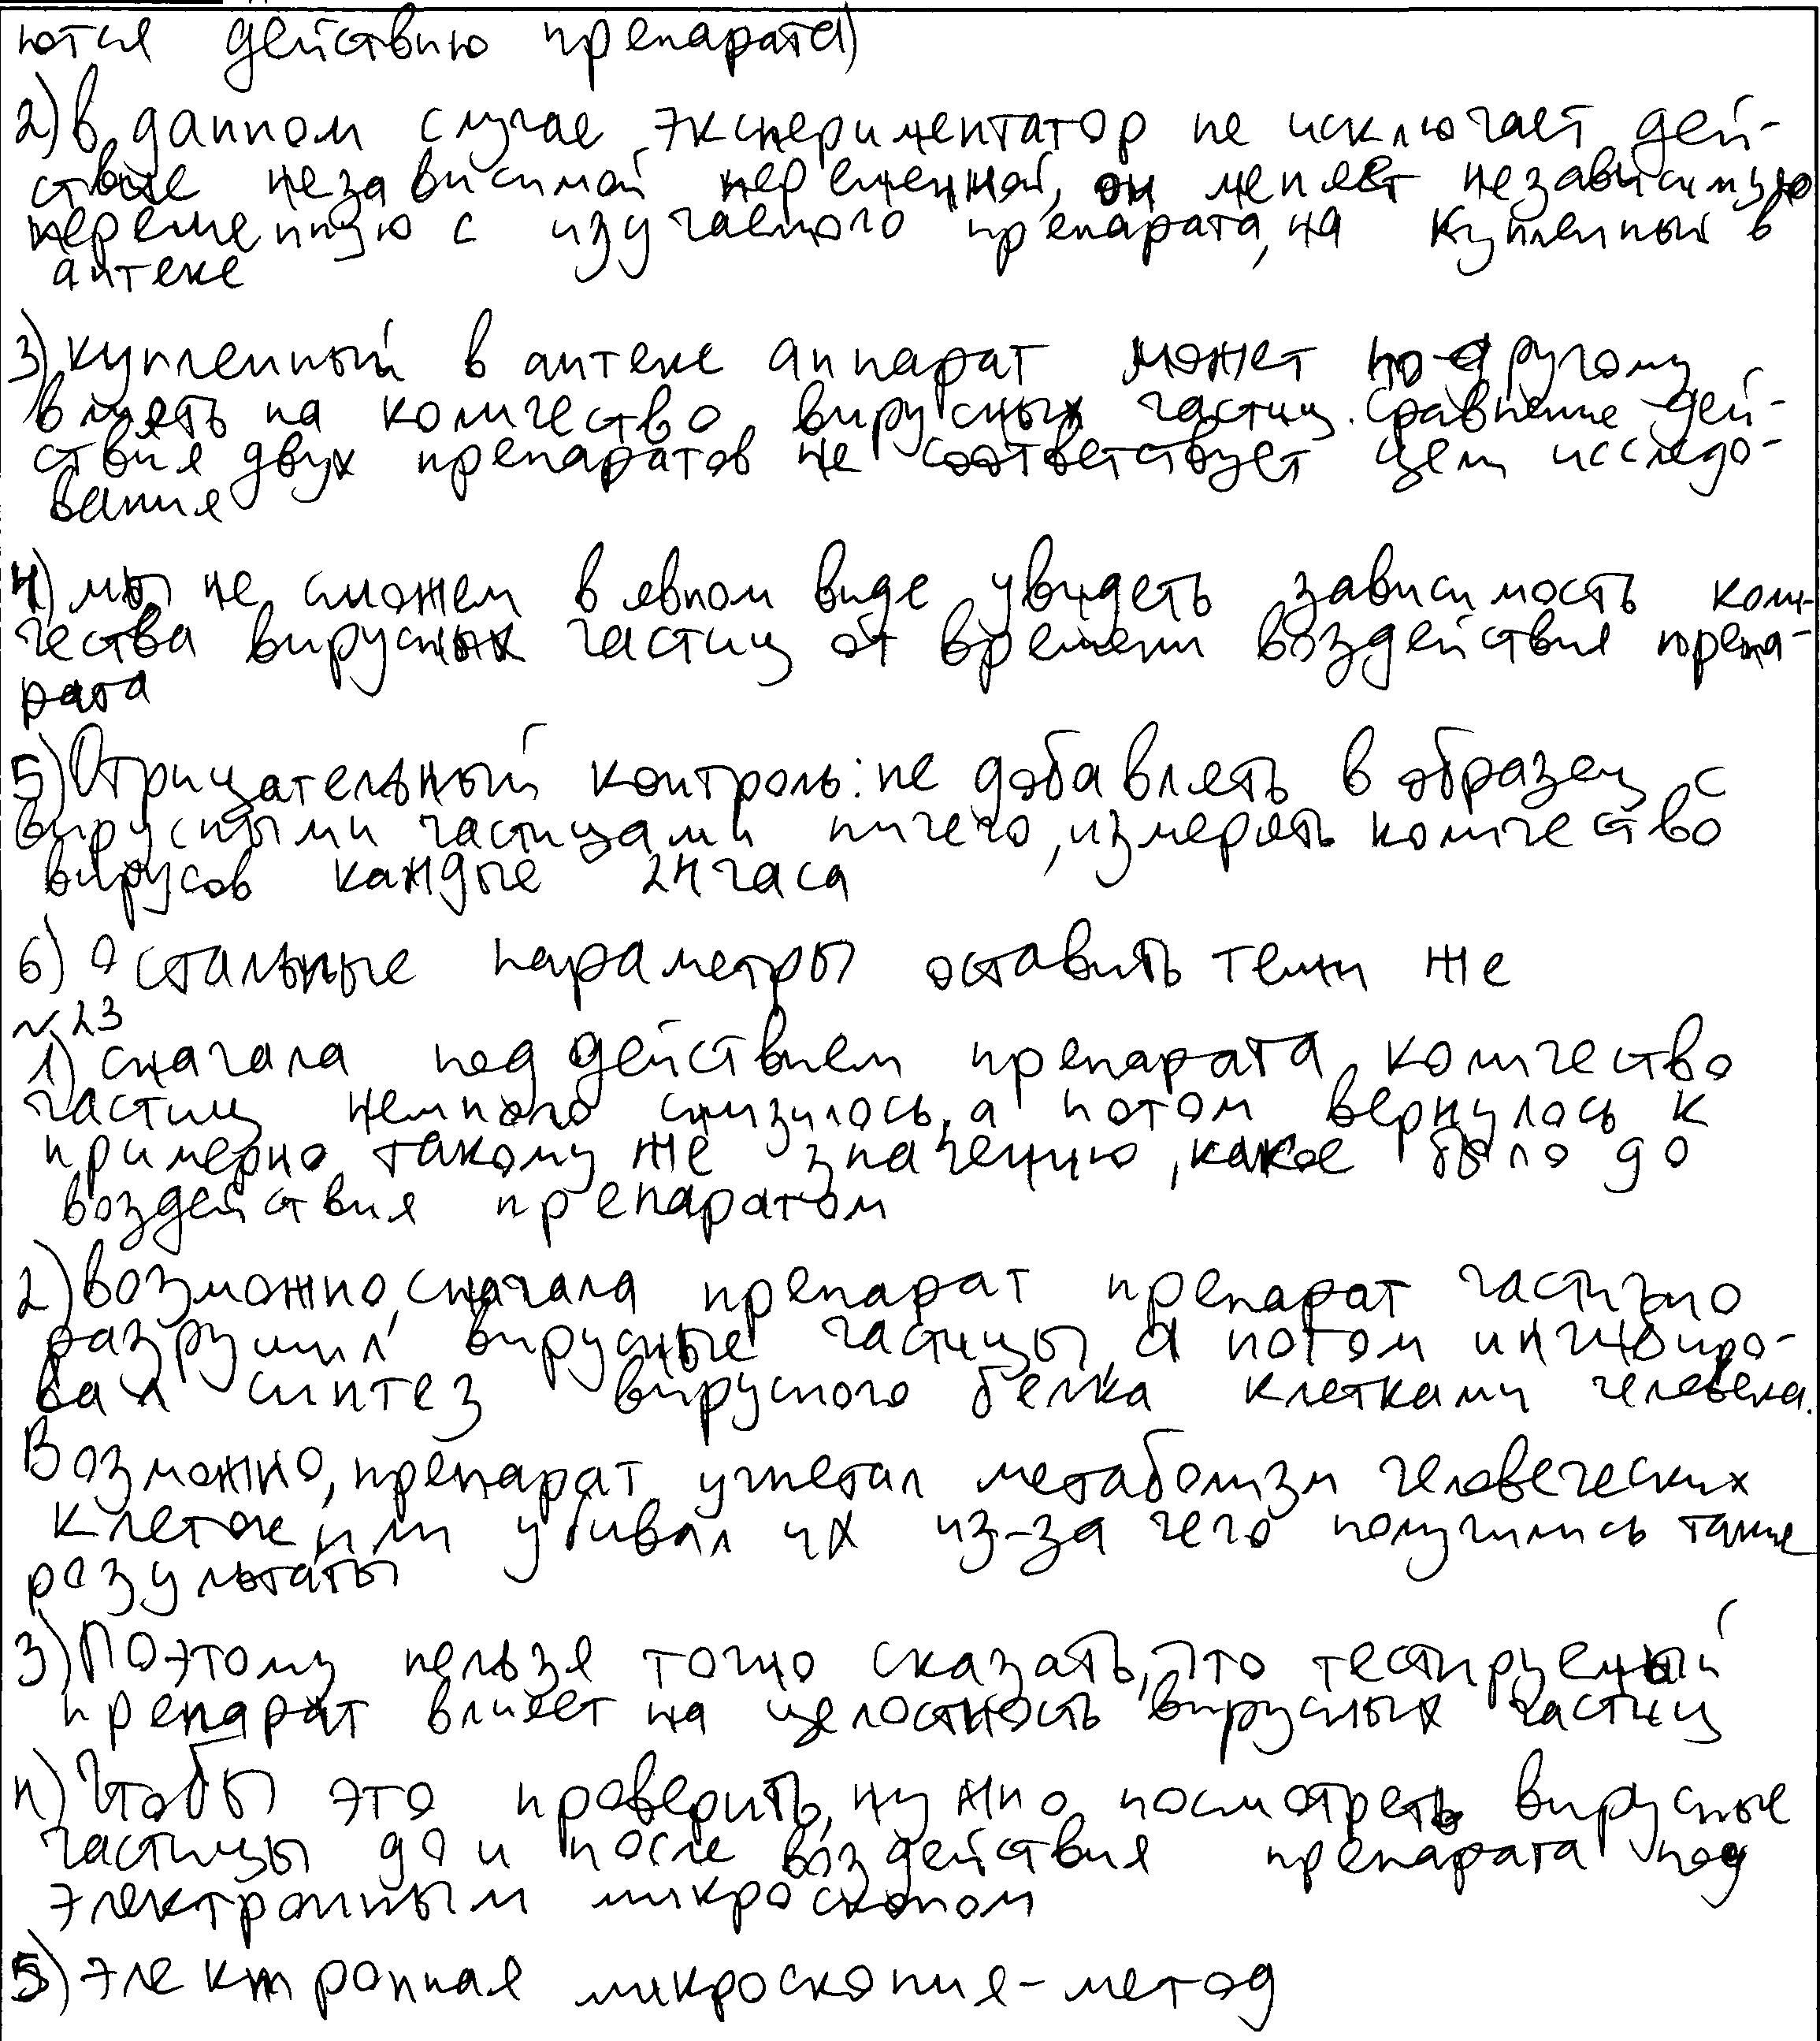 ются действию препарата)
2) в данном случае экспериментатор не исключает дей-
ствие независимой переменной, он меняет независимую
переменную с изучаемого препарата, на купленный в
аптеке
3) купленный в аптеке аппарат может по-другому
влиять на количество вирусных частиц. Сравнение дей-
ствия двух препаратов не соответствует цели исследо-
вания
4) мы не сможем в явном виде увидеть зависимость коли-
чества вирусных частиц от времени воздействия препа-
рата
5) Отрицательный контроль: не добавлять в образец с
вирусными частицами ничего, измерять количество
вирусов каждые 24 часа
6) Остальные параметры оставить теми же
№23
1) сначала под действием препарата количество
частиц немного снизилось, а потом вернулось к
примерно такому же значению, какое было до
воздействия препаратом
2) возможно, сначала препарат препарат частично
разрушил вирусные частицы, а потом ингибиро-
вал синтез вирусного белка клетками человека.
Возможно, препарат угнетал метаболизм человеческих
клеток или убивал их из-за чего получились такие
результаты
3) Поэтому нельзя точно сказать, что тестируемый
препарат влияет на целостность вирусных частиц
4) Чтобы это проверить, нужно посмотреть вирусные
частицы до и после воздействия препарата под
электронным микроскопом
5) электронная микроскопия - метод